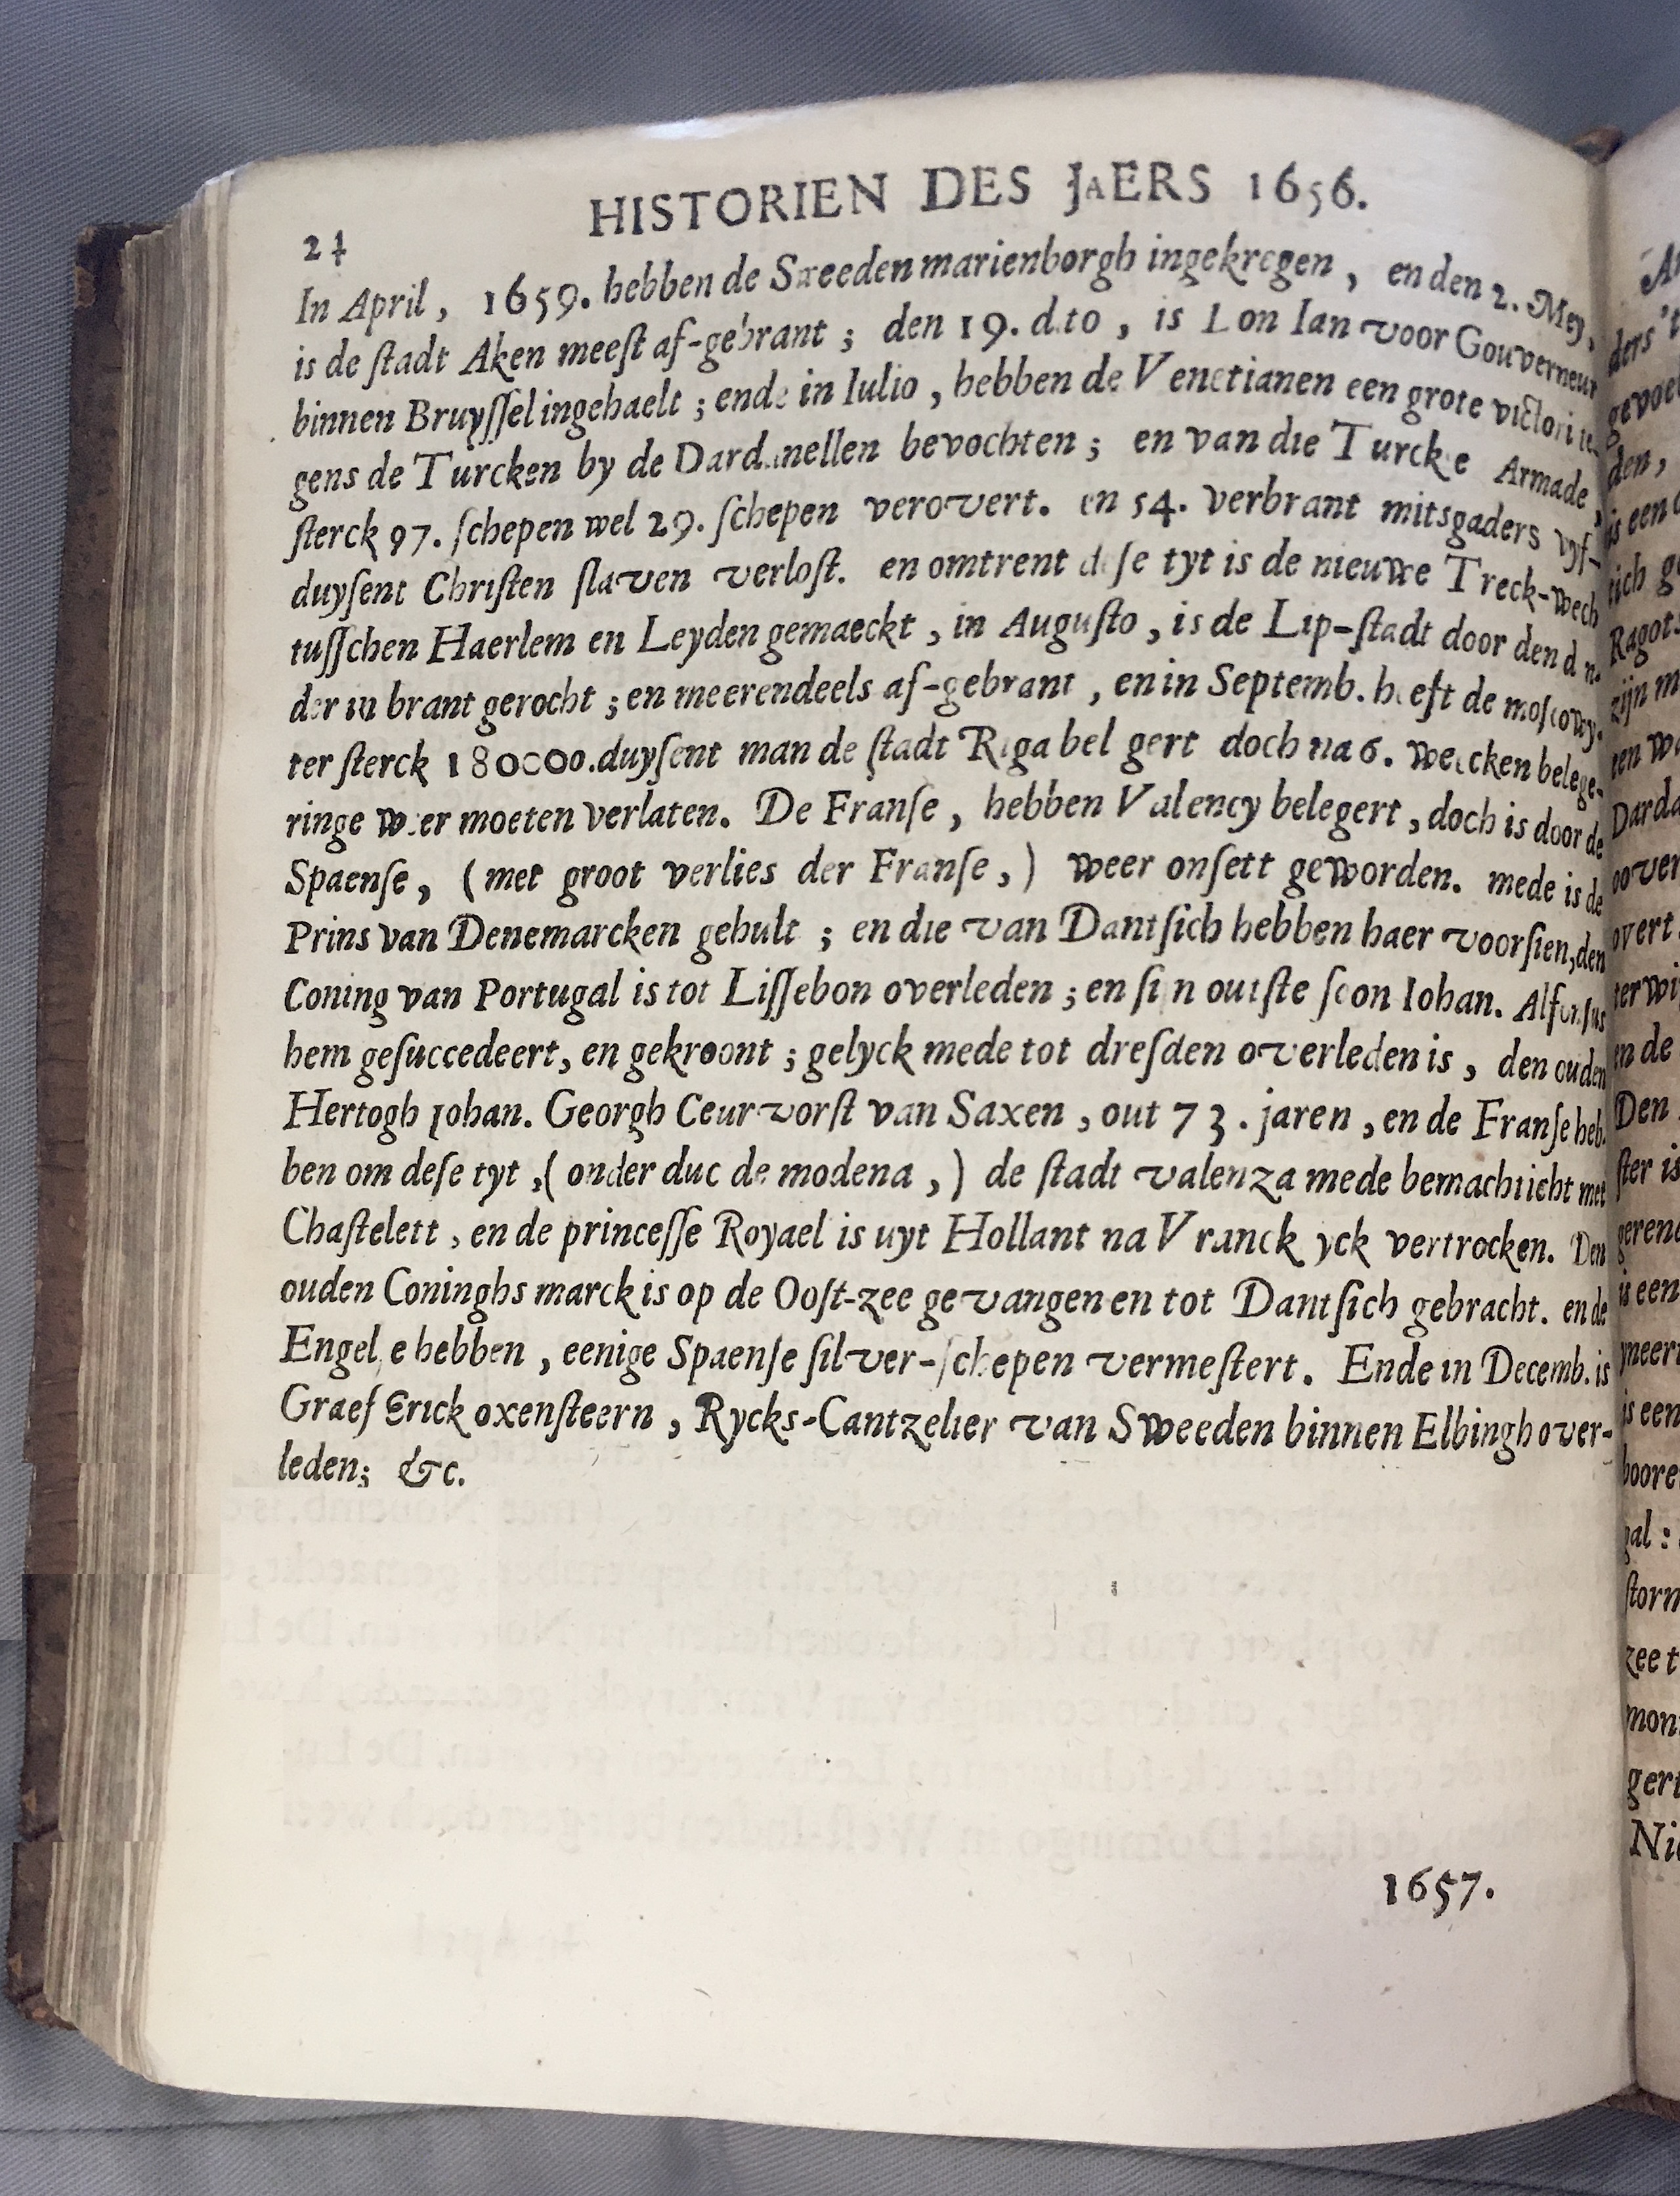 HISTORIEN DES JAERS 1656.
24
In April, 1659. hebben de Sweeden marienborgh ingekregen, en den 2. Mey,
is de ſtadt Aken meeſt af-gebrant; den 19. dito, is Don Ian voor Gouverneur
binnen Bruyſſel ingehaelt; ende in Iulio, hebben de Venetianen een grote victori te-
gens de Turcken by de Dardanellen bevochten; en van die Turcke Armade,
ſterck 97. ſchepen wel 29. ſchepen verovert. en 54. verbrant mitsgaders vyf-
duyſent Chriſten ſlaven verloſt. en omtrent deſe tyt is de nieuwe Treck-wech
tuſſchen Haerlem en Leyden gemaeckt, in Auguſto, is de Lip-ſtadt door den
der in brant gerocht; en meerendeels af-gebrant, en in Septemb. heeft de moſcowy-
ter ſterck 180000. duyſent man de ſtadt Riga bel gert doch na 6. weecken belege-
ringe weer moeten verlaten. De Franſe, hebben Valency belegert, doch is door de
Spaenſe, (met groot verlies der Franſe,) weer onſett geworden. mede is de
Prins van Denemarcken gehult; en die van Dantſich hebben haer voorſien, den
Coning van Portugal is tot Liſſebon overleden; en ſijn outſte ſoon Iohan. Alfonſus
hem geſuccedeert, en gekroont; gelyck mede tot dreſden overleden is, den ouden
Hertogh Iohan. Georgh Ceurvorſt van Saxen, out 73. jaren, en de Franſe heb-
ben om deſe tyt, (onder duc de modena,) de ſtadt valenza mede bemachticht met
Chaſtelett, en de princeſſe Royael is uyt Hollant na Vranck yck vertrocken. Den
ouden Coninghs marck is op de Ooſt-zee gevangen en tot Dantſich gebracht. en de
Engel e hebben, eenige Spaenſe ſilver-ſchepen vermeſtert. Ende in Decemb. is
Graef Erick oxenſteern, Rycks-Cantzelier van Sweeden binnen Elbingh over-
leden; &c.
1657.